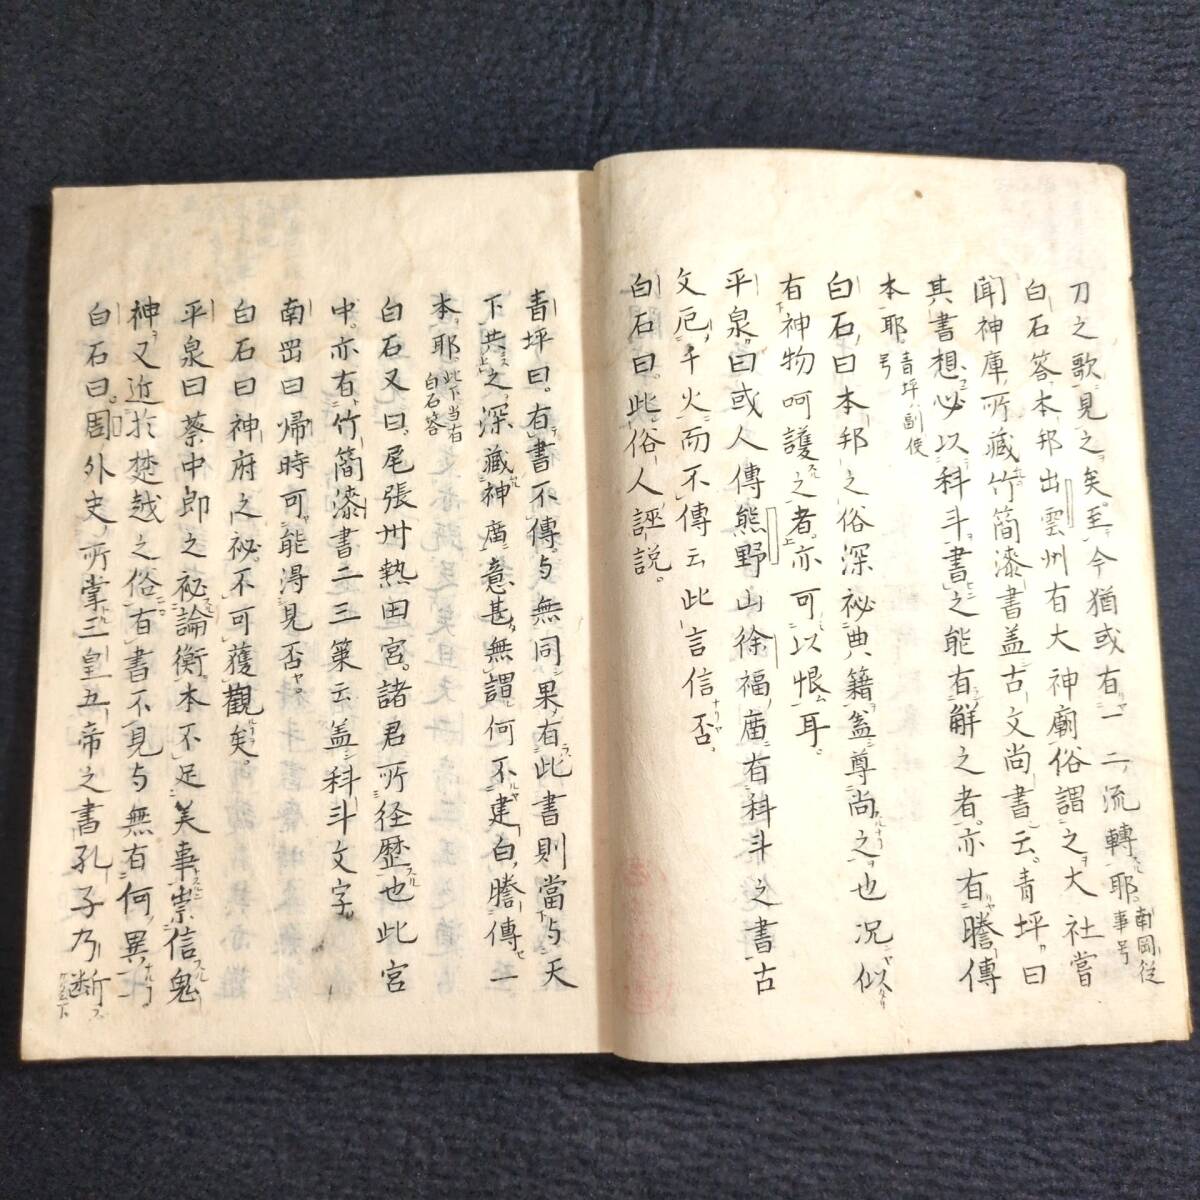 刀之歌見之矣至今猶或有一二流轉耶南岡従事号
白石答本邦出雲州有大神廟俗謂之大社嘗
聞神庫所藏竹簡漆書蓋古文尚書云青坪曰
其書想必以科斗書之能有解之者亦有謄傳
本耶青坪副使号
白石曰本邦之俗深祕典籍盖尊尚之也况似
有神物呵護之者亦可以恨耳
平泉曰或人傳熊野山徐福庿有科斗之書古
文厄于火而不傳云此言信否
白石曰此俗人誣説
青坪曰有書不傳与無同果有此書則當与天
下共之深藏神庿意甚無謂何不建白謄傳一
本耶此下当有白石答
白石又曰尾張州熱田宮諸君所径歴也此宮
中亦有竹簡漆書二三策云盖科斗文字
南岡曰帰時可能得見否
白石曰神府之祕不可獲觀矣
平泉曰蔡中郎之祕論衡本不足美事崇信鬼
神又近於楚越之俗有書不見与無有何異
白石曰周外史所掌三皇五帝之書孔子乃断